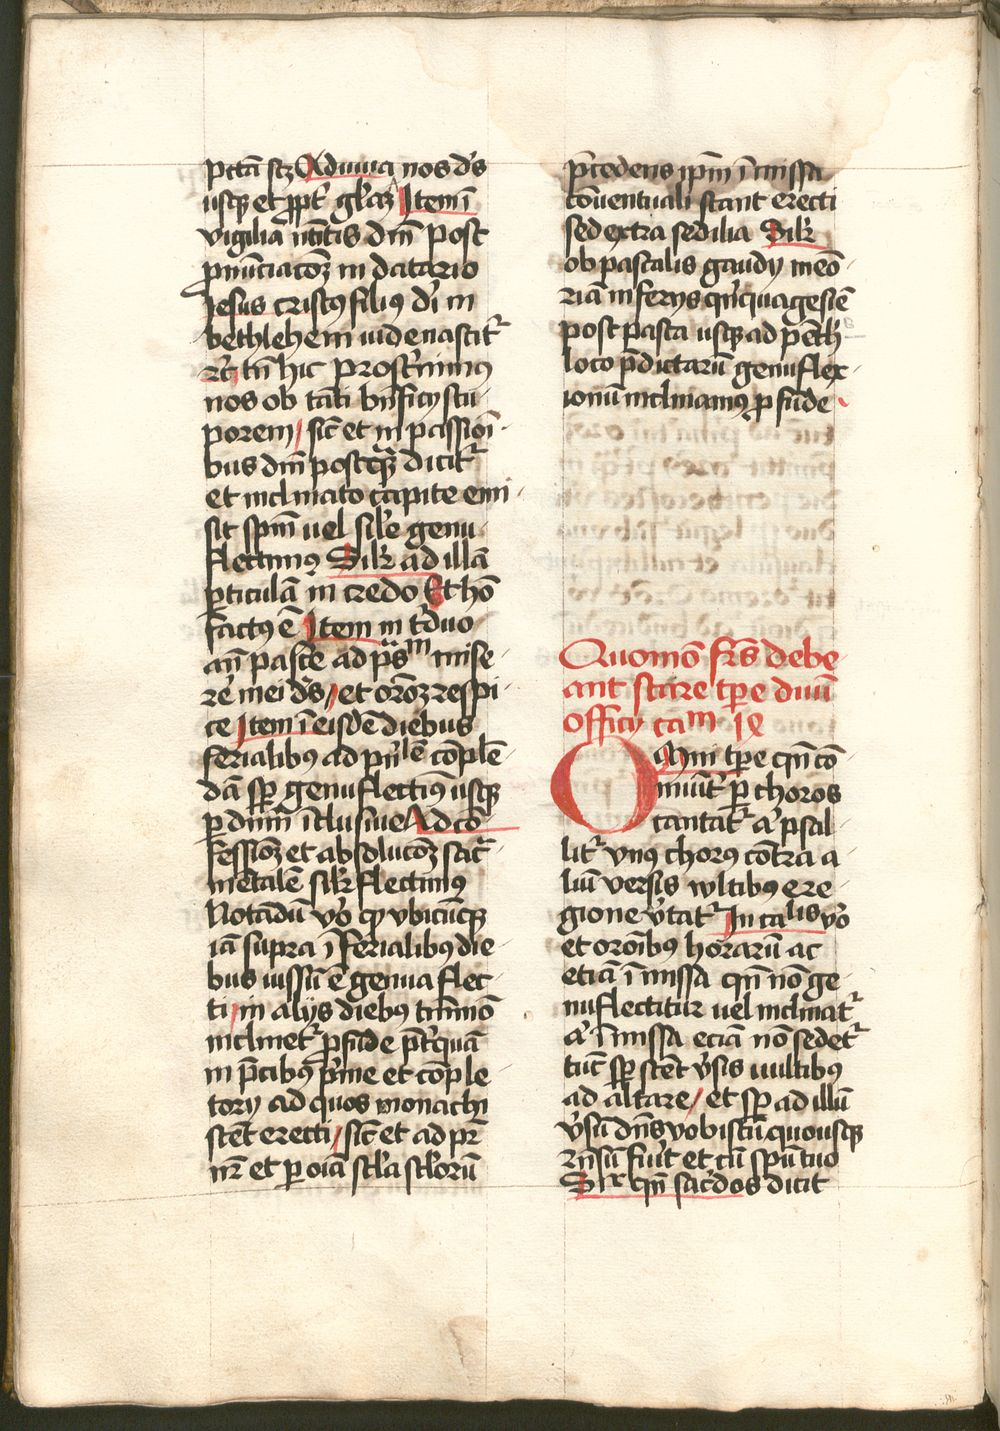 pctā scz Adiuua nos d's
usq̄ et ꝓpt' gl'iaꝫ Item ī
vigilia n̄titis dm̄ post
ꝓnūciacōꝫ in datario
Jesus cristꝯ filiꝯ dī in
bethlehem iude nascit̄ᷣ
rc̄ tn̄ hic prost'nimꝯ
nos ob tāti bn̄ficij stu
porem / sic̄ et in passiōi
bus dm̄ postqᷓꝫ dicit̄ᷣ
et inclinato capite emi
sit spm̄ uel sil'e genu
flectimꝯ Silr ad illā
ꝑticulā in credo Et hō
factꝯ ē Item in t'duo
an̄ pasce ad p̄sᵐ mise
re' mei d's / et orōꝫ respi
ce Item ī eisdē diebus
ferialibꝯ ad pn̄lē cōple
dā sꝑ genuflectimꝯ usq̄
ꝑ dnm̄ īclusiue Ad cō
fessionꝫ et absolucōꝫ sac̄
mētalē silr flectimꝯ
Notādū vo' qꝫ vbicūqꝫ
iā supra ī ferialibꝯ die
bus iussū ē genua flec
ti / in alijs diebꝯ tm̄mō
inclinet̄ᷣ ꝓfūde p̄t'quā
in p̄cibꝯ p'me et cōple
torij ad quos monachi
stēt erecti / sic̄ et ad pr̄
nr̄ et ꝑ oīa scl'a scl'orū
p̄cedens ipm̄ ī missa
cōuentuali stant erecti
sed extra sedilia Silr
ob pascalis gaudij memō
riā in ferijs qn̄quagesiē
post pasca usq̄ ad pēth'
loco p̄dictarū genuflex
ionū inclinamꝯ ꝓfūde
Quomō fr̄s debe
ant stare tꝑe diuī
officij caᵐ ix
Omni tꝑe qn̄ cō
muit̄ᷣ ꝑ choros
cantāt̄ᷣ a' psal
lit̄ᷣ vnꝯ chorꝯ cōtra a
liū versis wltibꝯ e re
gione v'tat̄ᷣ In caˡⁱˢ vo'
et orōibꝯ horarū ac
etiā ī missa qn̄ nō ge
nuflectitur uel inclinat̄ᷣ
a' ī missa eciā nō sedet̄ᷣ
tūc sꝑ stēt v'sis uultibꝯ
ad altare / et sꝑ ad illū
v'sū dn̄s vobiscū quousq̄
rn̄sū fiu't et cū spū tuo
Sr qn̄ sac'dos dicit